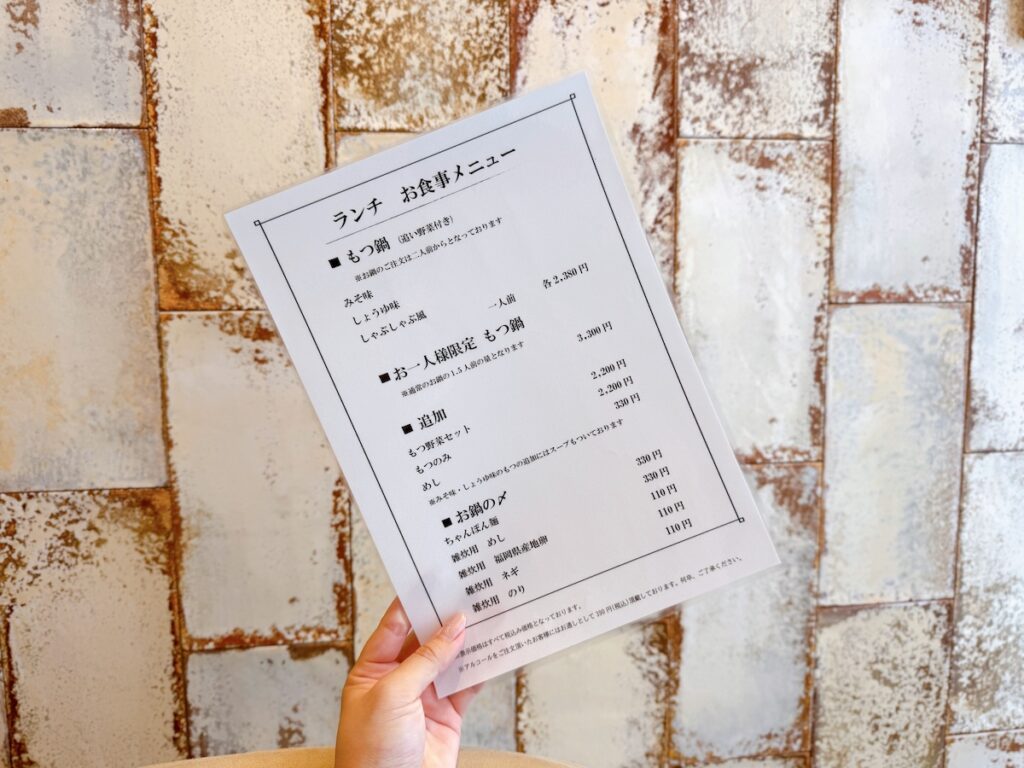 ランチ お食事メニュー
■ もつ鍋 (追い野菜付き)
※お鍋のご注文は二人前からとなっております
みそ味
しょうゆ味
しゃぶしゃぶ風 一人前 各2,380円
■ お一人様限定 もつ鍋 3,300円
※通常のお鍋の1.5人前の量となります
■ 追加
もつ野菜セット 2,200円
もつのみ 2,200円
めし 330円
※みそ味・しょうゆ味のもつの追加にはスープもついております
■ お鍋の〆
ちゃんぽん麺 330円
雑炊用 めし 330円
雑炊用 福岡県産地卵 110円
雑炊用 ネギ 110円
雑炊用 のり 110円
表示価格はすべて税込み価格となっております。
※アルコールをご注文頂いたお客様にはお通しとして330円(税込)頂戴しております。何卒、ご了承ください。